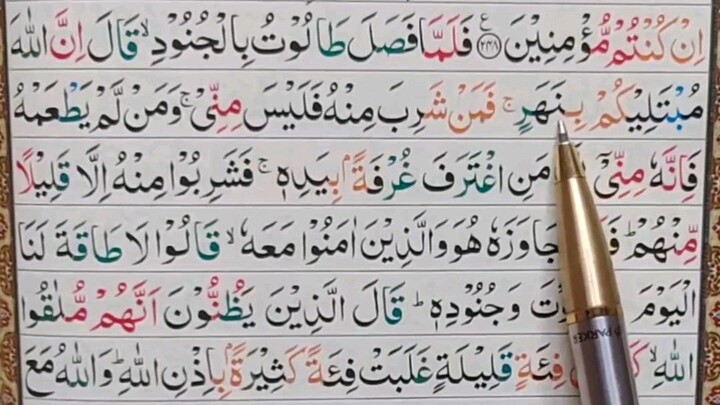 اِنْ كُنْتُمْ مُّؤْمِنِيْنَ ﴿۲۴۸﴾ ع فَلَمَّا فَصَلَ طَالُوْتُ بِالْجُنُوْدِ ۙ قَالَ اِنَّ اللّٰهَ
مُبْتَلِيْكُمْ بِنَهَرٍ ۚ فَمَنْ شَرِبَ مِنْهُ فَلَيْسَ مِنِّيْ ۚ وَمَنْ لَّمْ يَطْعَمْهُ
فَاِنَّهٗ مِنِّيْٓ مَنِ اغْتَرَفَ غُرْفَةًۢ بِيَدِهٖ ۚ فَشَرِبُوْا مِنْهُ اِلَّا قَلِيْلًا
مِّنْهُمْ ؕ جَاوَزَهٗ هُوَ وَالَّذِيْنَ اٰمَنُوْا مَعَهٗ ۙ قَالُوْا لَا طَاقَةَ لَنَا
الْيَوْمَ وَجُنُوْدِهٖ ؕ قَالَ الَّذِيْنَ يَظُنُّوْنَ اَنَّهُمْ مُّلٰقُوا
اللّٰهِ ۙ فِئَةٍ قَلِيْلَةٍ غَلَبَتْ فِئَةً كَثِيْرَةًۢ بِاِذْنِ اللّٰهِ ؕ وَاللّٰهُ مَعَ
PARKER